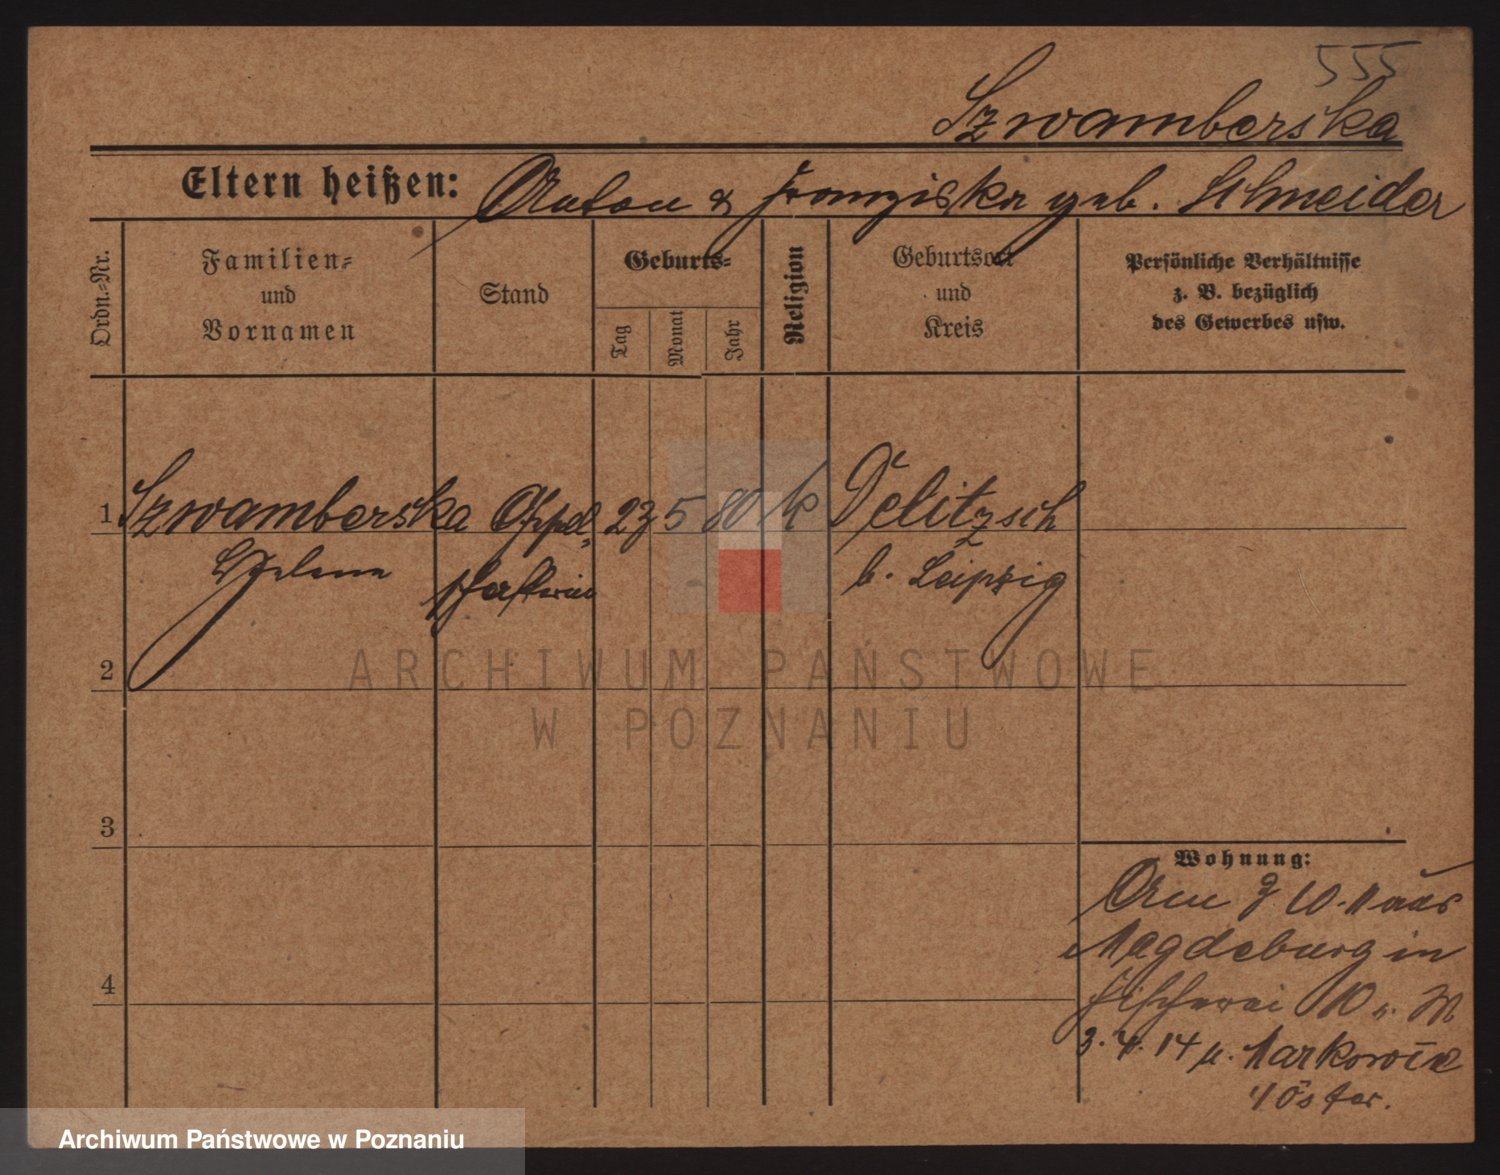 555
Szwamberska
Eltern heißen: Anton & Franziska geb. Schneider
Ordn.-Nr.
Familien-
und
Vornamen
Stand
Geburts-
Tag
Monat
Jahr
Religion
Geburtsort
und
Kreis
Persönliche Verhältnisse
z. B. bezüglich
des Gewerbes usw.
1 Szwamberska 23 5 80 k Delitzsch
Helene b. Leipzig
2
ARCHIWUM PAŃSTWOWE
W POZNANIU
3
Wohnung:
10.
Magdeburg in
4
Fischerei 10
3. 4. 14
Archiwum Państwowe w Poznaniu